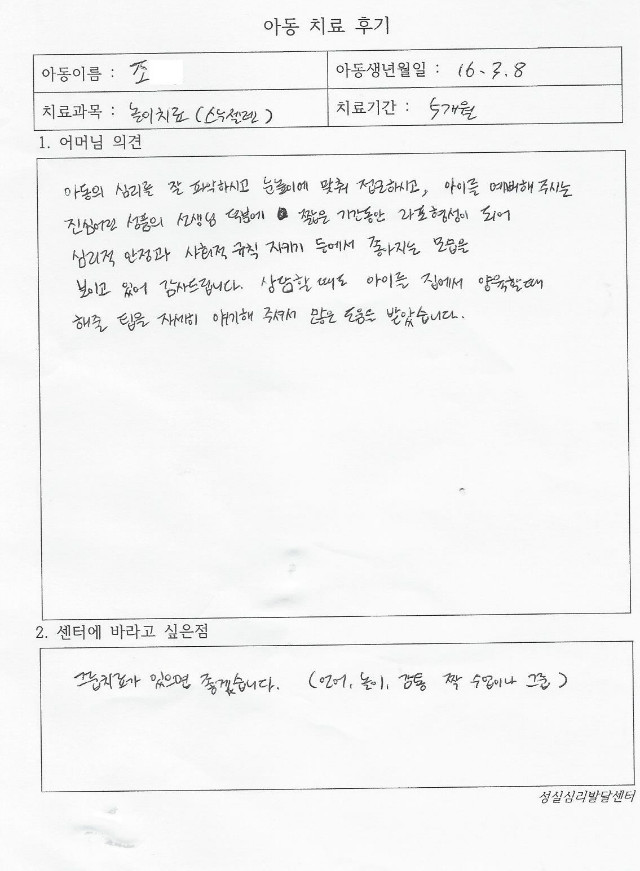 아동 치료 후기
아동이름 : 조
아동생년월일 : 16. 3. 8
치료과목 : 놀이치료 (스누젤렌)
치료기간 : 5개월
1. 어머님 의견
아동의 심리를 잘 파악하시고 눈높이에 맞춰 접근하시고, 아이를 예뻐해 주시는
진심어린 성품의 선생님 덕분에 짧은 기간동안 라포형성이 되어
심리적 안정과 사회적 규칙 지키기 등에서 좋아지는 모습을
보이고 있어 감사드립니다. 상담할 때도 아이를 집에서 양육할때
해줄 팁을 자세히 얘기해 주셔서 많은 도움을 받았습니다.
2. 센터에 바라고 싶은점
그룹치료가 있으면 좋겠습니다. (언어, 놀이, 감통 짝 수업이나 그룹)
성실심리발달센터